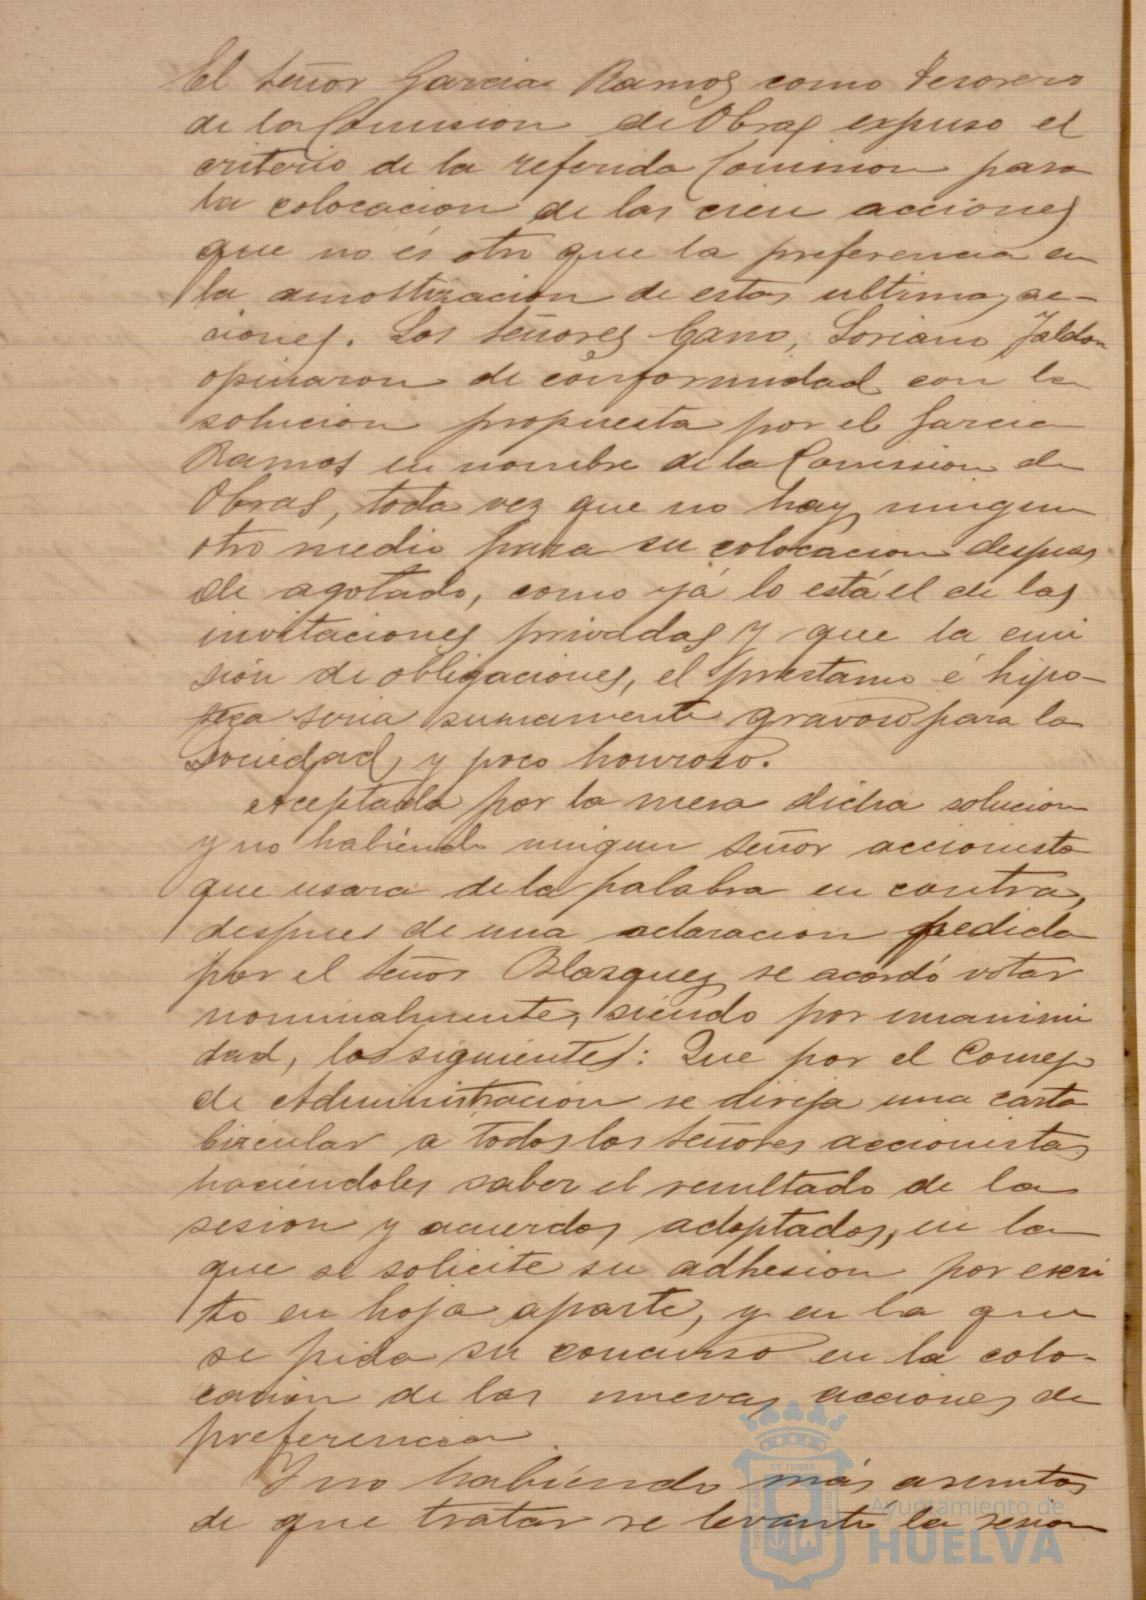 El señor Garcia Ramos como tesorero
de la Comision de Obras expuso el
criterio de la referida Comision para
la colocacion de las cien acciones
que no és otro que la preferencia en
la amortizacion de estas ultimas ac-
ciones. Los señores Cano, Soriano Jaldon
opinaron de conformidad con la
solucion propuesta por el Garcia
Ramos en nombre de la Comision de
Obras, toda vez que no hay ningun
otro medio para su colocacion despues
de agotado, como yá lo está el de las
invitaciones privadas y que la emi
sión de obligaciones, el prestamo é hipo-
teca seria sumamente gravoso para la
Sociedad, y poco honroso.
Aceptada por la mesa dicha solucion
y no habiendo ningun señor accionista
que usara de la palabra en contra,
despues de una aclaracion pedida
por el señor Blazquez se acordó votar
nominalmente, siendo por unanimi
dad, los siguientes: Que por el Consejo
de Administracion se dirija una carta
circular a todos los señores accionistas
haciéndoles saber el resultado de la
sesion y acuerdos adoptados, en la
que se solicite su adhesion por escri
to en hoja aparte, y en la que
se pida su concurso en la colo-
cacion de las nuevas acciones de
preferencia
Y no habiendo más asuntos
de que tratar se levantó la sesion
Ayuntamiento de
HUELVA